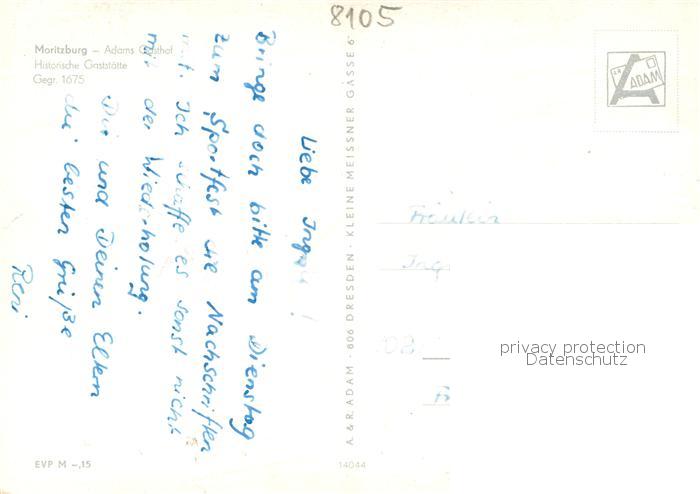 8105
Moritzburg – Adams Gasthof
Historische Gaststätte
Gegr. 1675
Liebe
Bringe doch bitte am Dienstag
zum Sportfest die Nachschriften
mit. Ich schaffe es sonst nicht
mit der Wiederholung.
Dir und Deinen Eltern
die besten Grüße
Reni
A. & R. ADAM · 806 DRESDEN · KLEINE MEISSNER GASSE 6
ADAM
Fräulein
Ing
08
privacy protection
Datenschutz
EVP M –,15
14044